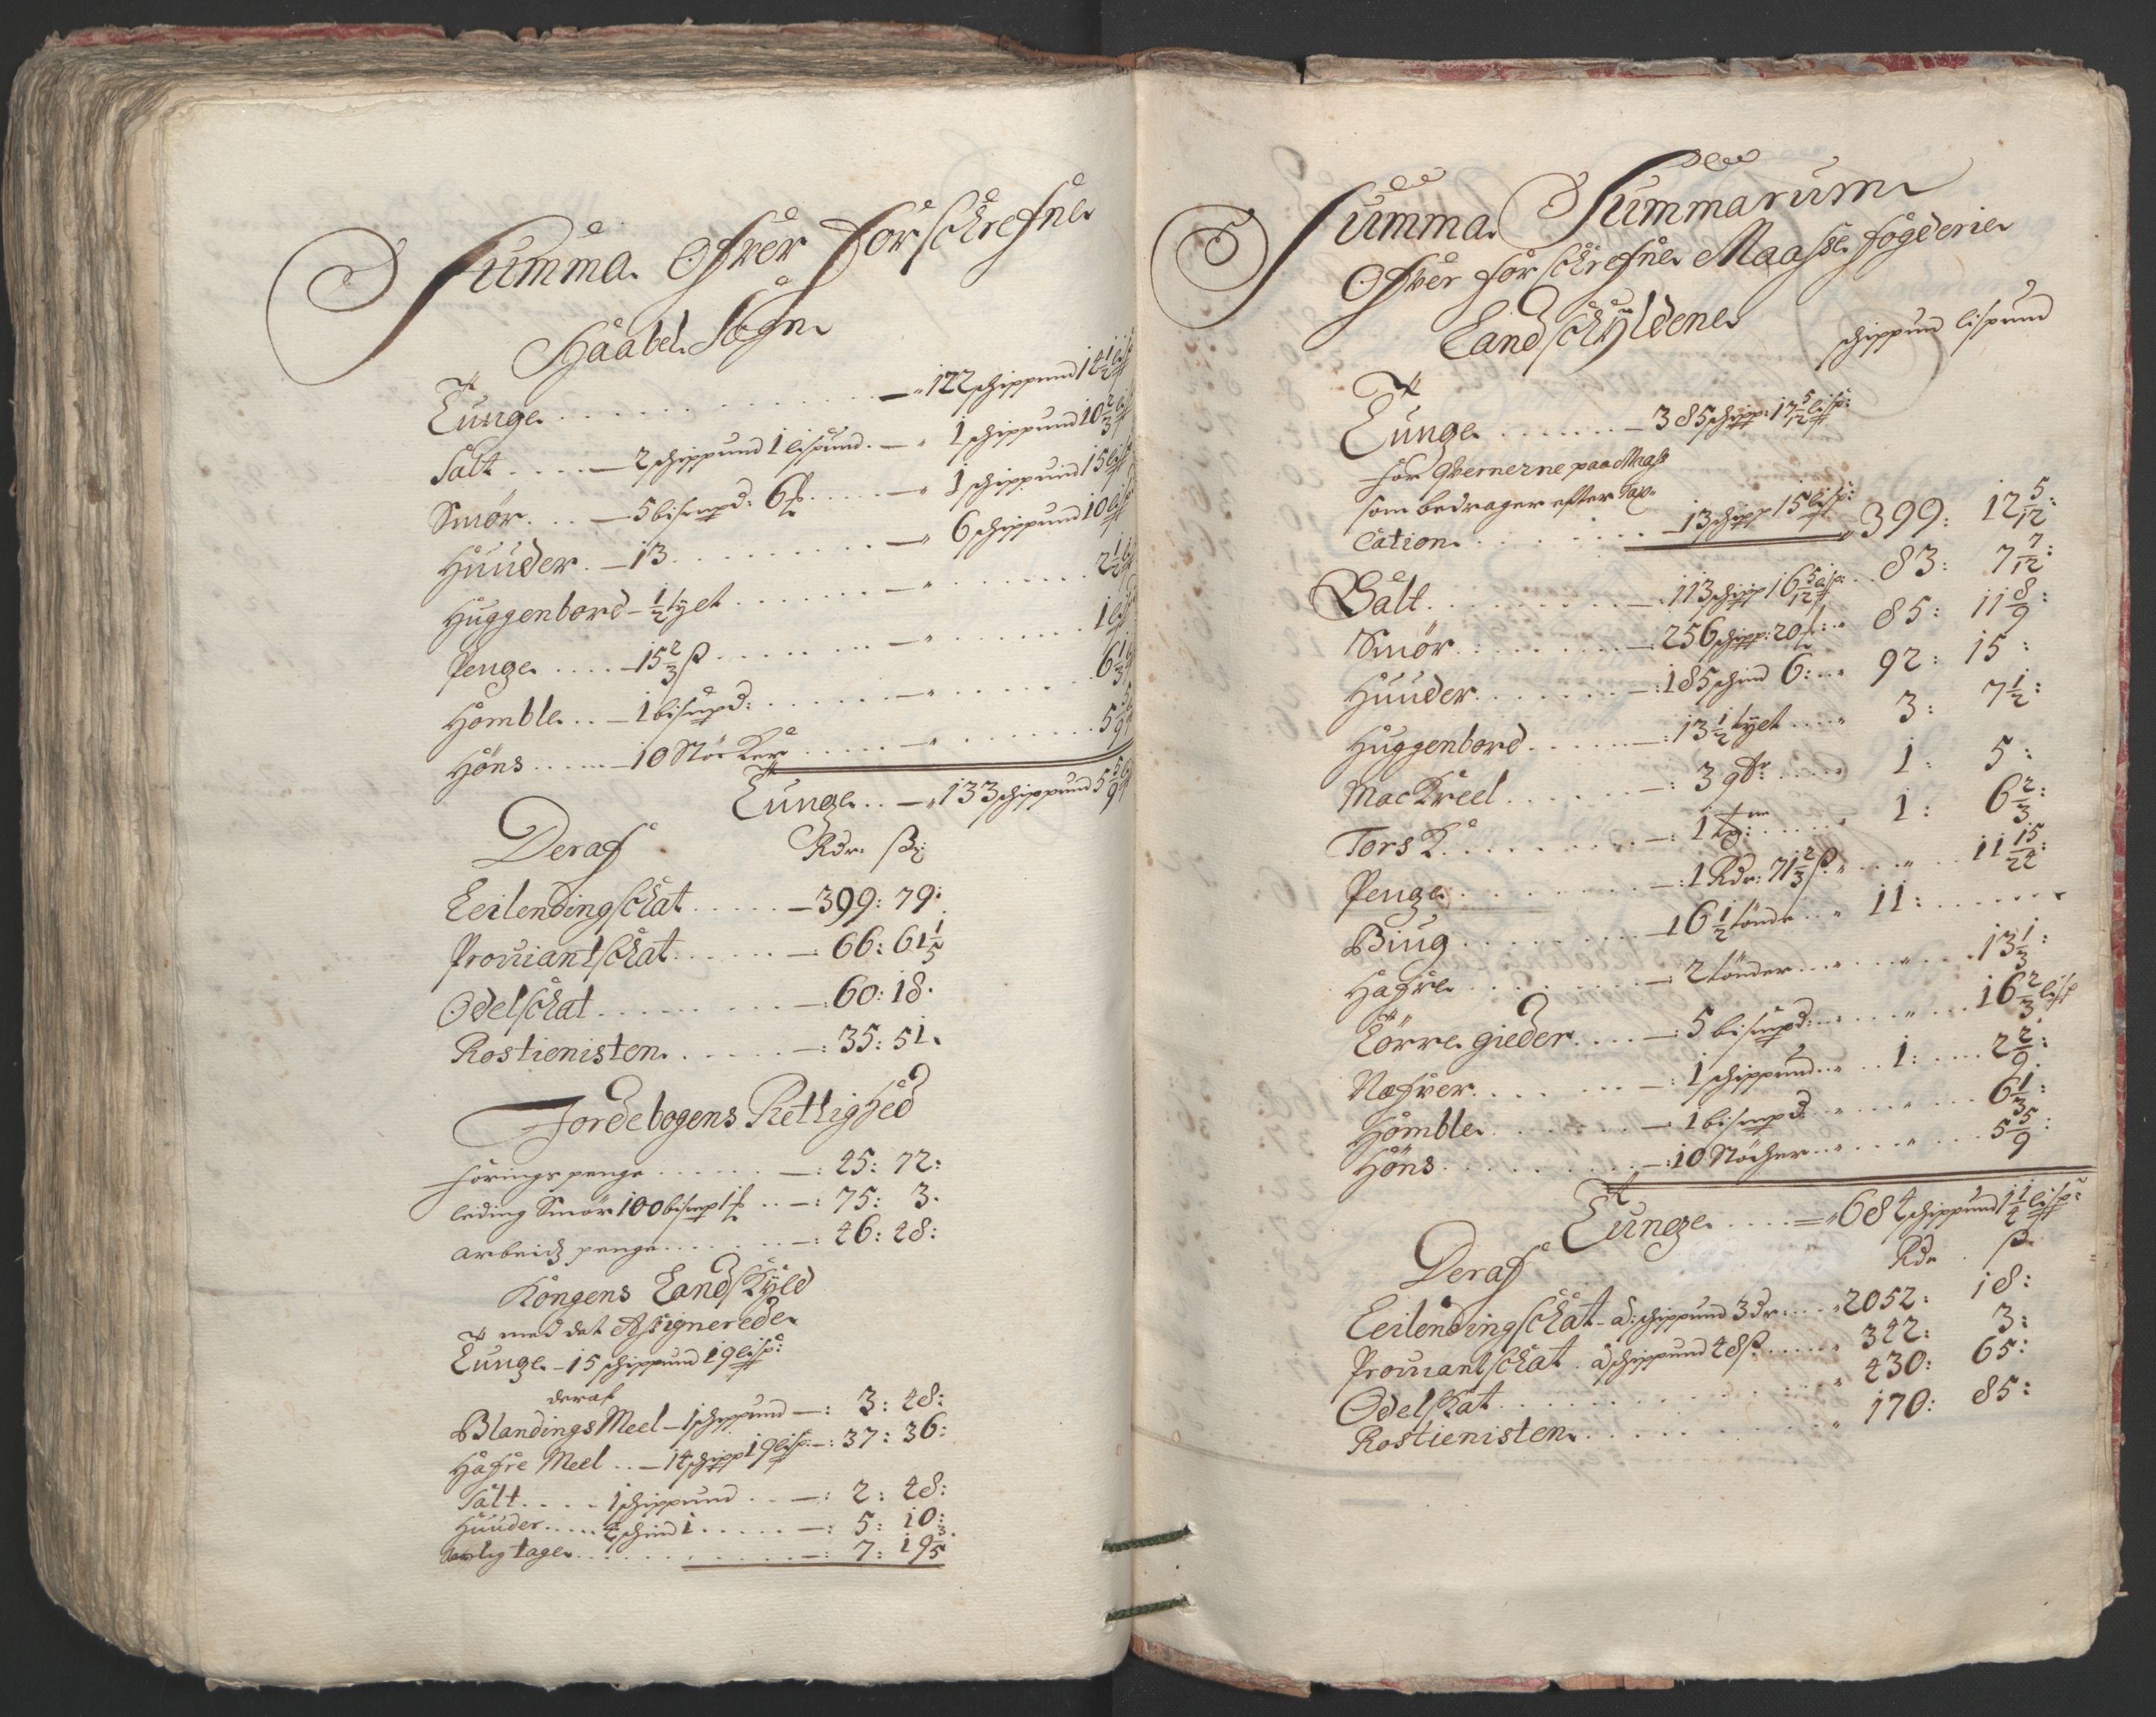 Summa Ofver forschrefne
Haabel Sogn
Tunge . . . . . — " 122 schippund 14 1/2 lisp
Salt . . . . — 2 schippund 1 lispund. — " 1 schippund 10 2/3 lisp
Smör . . . — 5 bismpd: 6 ℔ . . . . — " 1 schippund 15 lisp
Huuder . — 13 . . . . . . — " 6 schippund 10 lisp
Huggenbord — 1/2 tyet . . . . . — " . . . . . 2 1/2
Penge . . . . — 15 2/3 ß . . . . . — " . . . . . 1 lisp
Homble . . — 1 bismpd: . . . . . — " . . . . . 6 1/3
Höns . . . . — 10 Stöcker . . . . — " . . . . . 5 5/9
Tunge . . — " 133 schippund 5 5/9
Deraf Rdr. ß:
Leilendingschat . . . . . — 399: 79:
Proviantschat . . . . . — 66: 61 1/5
Odelschat . . . . . —: 60: 18.
Rostienisten . . . . . —: 35: 51.
Jordebogens Rettighed
Föringspenge . . . . . —: 45: 72:
leding Smör 100 bismp 1 ℔ . . —: 75: 3.
arbeidz penge . . . . . —: 46: 48:
Kongens Landskyld
med det Assignerede
Tunge — 15 schippund 19 lisp:
deraf
Blandings Meel — 1 schippund —: 3: 48:
Hafre Meel . . — 14 schipp 19 lisp: —: 37: 36:
Salt . . . . 1 schippund . . —: 2: 48:
Huuder . . . . . 4 schind 1 . . . . . —: 5: 10:
tage . . . . . —: 7: 19 3/5
Summa Summarum
Ofver forschrefne Maasse fögderie
Landschyldene
schippund lispund
Tunge . . . . . — 385 schipp: 17 5/12 lisp:
for Qvernerne paa Mass
som bedrager efter Tax-
ation . . . . . — 13 schipp 15 lisp: " 399: 12 5/12:
Salt . . . . . —: 113 schipp 16 5/12 lisp: . . 83: 7 7/12:
Smör . . . . . — 256 schipp: 20 ℔: . . " 85: 11 8/9:
Huuder . . . . . —: 185 schind 6: . . " 92: 15:
Huggenbord . . . . . —: 13 1/2 tyet . . . . " 3: 7 1/2:
MacKreel . . . . . —: 3 qtr: . . . . . 1: 5:
Torsk . . . . . —: 1 . . . . . " 1: 6 2/3:
Penge . . . . . —: 1 Rdr: 71 2/3 ß. " . . . " . . 11 15/24:
Biug . . . . . — 16 1/2 tönde . . " 11: . . . . .
Hafre . . . . . —: 2 tönder . . . " . . . " . . 13 1/3:
Törre gieder . . . —: 5 bismpd: . . . " . . . " . . 16 2/3 lisp
Næfver . . . . . —: 1 schippund . . " . . 1: . . . . 2 2/9:
Homble . . . . . — 1 bismpd: . . . " . . . " . . . 6 1/3:
Höns . . . . . —: 10 Stöcher . . " . . . " . . . 5 5/9:
Tunge . . . . = " 684 schippund 1 1/4 lisp:
Deraf Rdr. ß
Leilendingschat — â: schippund 3 dr: . . . " 2052: 18:
Proviantschat . â schippund 48 ß. . . . . " 342: 3:
Odelskat . . . . . " 430: 65:
Rostienisten . . . . . " 170: 85: